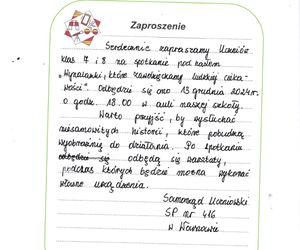 Zaproszenie
Serdecznie zapraszamy Uczniów
klas 7 i 8 na spotkanie pod nazwą
„Wynalazki, które zawdzięczamy ludzkiej cieka-
wości". Odbędzie się ono 13 grudnia 2024 r.
o godz. 18.00 w auli naszej szkoły.
Warto przyjść, by wysłuchać
niesamowitych historii, które pobudzą
wyobraźnię do działania. Po spotkaniu
odbędzie się odbędą się warsztaty,
podczas których będzie można wykonać
własne urządzenia.
Samorząd Uczniowski
SP nr 416
w Warszawie